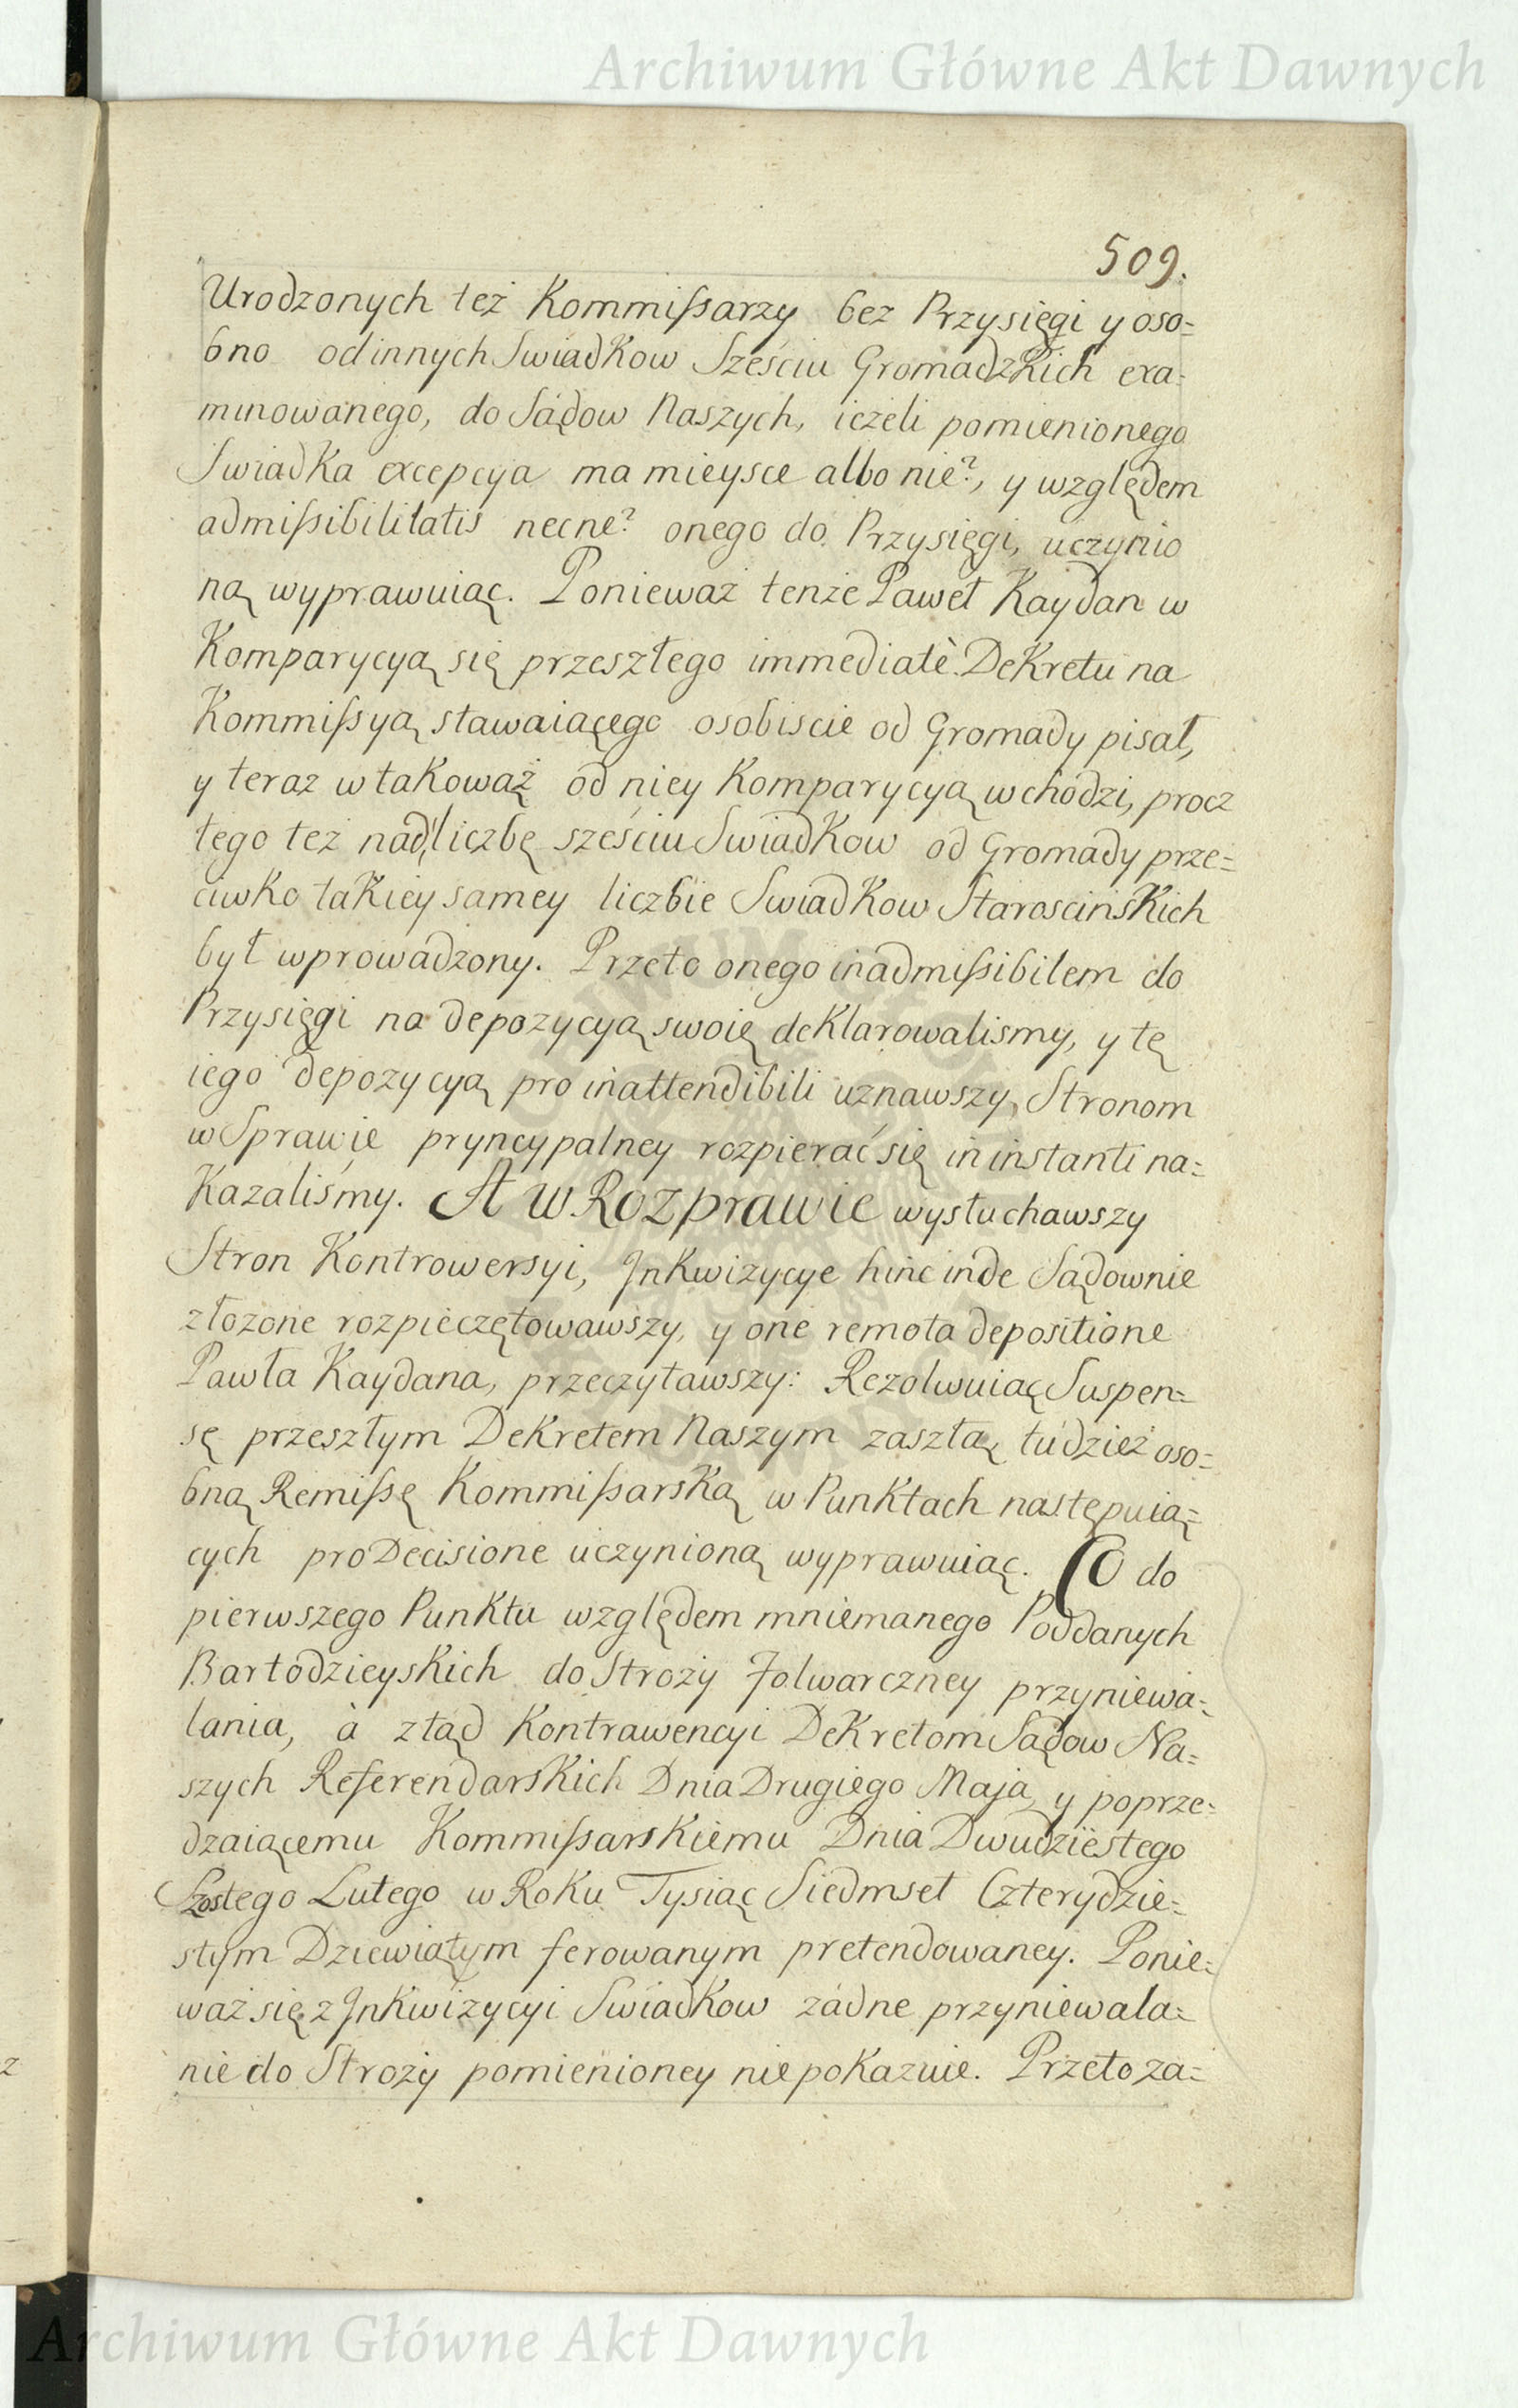 Archiwum Główne Akt Dawnych
509.
Urodzonych też Kommiſsarzy bez Przysięgi y oso=
bno od innych Swiadkow Sześciu Gromadzkich exa=
minowanego, do Sądow Naszych, ieżeli pomienionego
Swiadka excepcya ma mieysce albo nie?, y względem
admiſsibilitatis necne? onego do Przysięgi, uczynio
ną wyprawuiąc. Ponieważ tenże Paweł Kaydan w
Komparycyą się przeszłego immediatè Dekretu na
Kommiſsyą stawaiącego osobiscie od Gromady pisał,
y teraz w takoważ od niey Komparycyą wchodzi, procz
tego też nad liczbę sześciu Swiadkow od Gromady prze=
ciwko takiey samey liczbie Swiadkow Starościnskich
był wprowadzony. Przeto onego inadmiſsibilem do
Przysięgi na depozycyą swoię deklarowalismy, y tę
iego depozycyą pro inattendibili uznawszy, Stronom
w Sprawie pryncypalney rozpierać się in instanti na=
kazaliśmy. A w Rozprawie wysłuchawszy
Stron Kontrowersyi, Jnkwizycye hinc inde Sądownie
złożone rozpieczętowawszy, y one remota depositione
Pawła Kaydana, przeczytawszy: Rezolwuiąc Suspen=
sę przeszłym Dekretem Naszym zaszłą, tudzież oso=
bną Remiſsę Kommiſsarską w Punktach następuią=
cych pro Decisione uczynioną wyprawuiąc. Co do
pierwszego Punktu względem mniemanego Poddanych
Bartodzieyskich do Stroży Folwarczney przyniewa=
lania, à ztąd Kontrawencyi Dekretom Sądow Na=
szych Referendarskich Dnia Drugiego Maja, y poprze=
dzaiącemu Kommiſsarskiemu Dnia Dwudziestego
Szostego Lutego w Roku Tysiąc Siedmset Czterydzie=
stym Dziewiątym ferowanym pretendowaney. Ponie=
waż się z Jnkwizycyi Swiadkow żadne przyniewala=
nie do Stroży pomienioney nie pokazuie. Przeto za=
Archiwum Główne Akt Dawnych